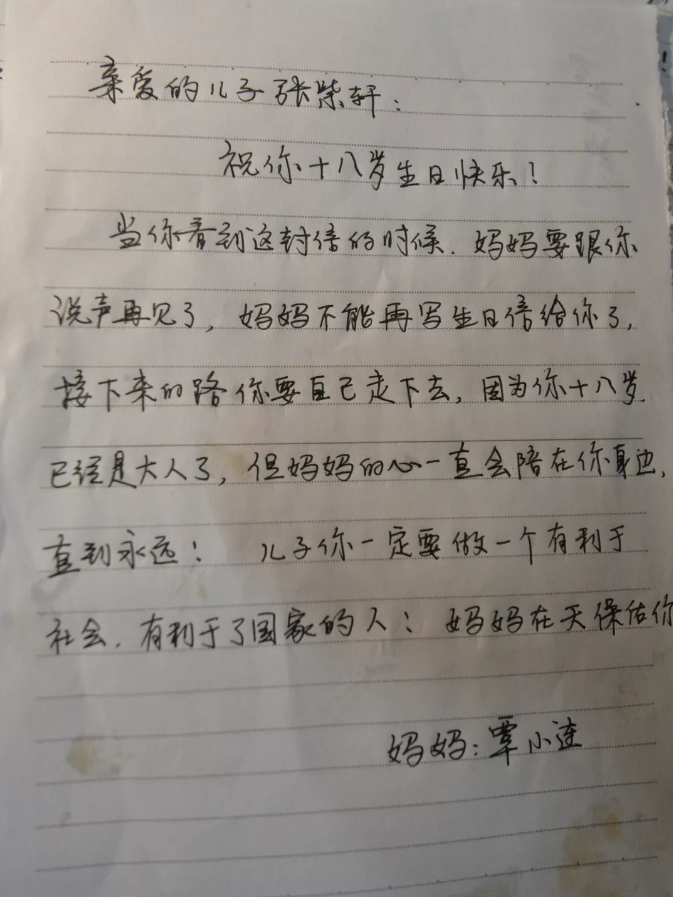 亲爱的儿子张紫轩：
祝你十八岁生日快乐！
当你看到这封信的时候．妈妈要跟你
说声再见了，妈妈不能再写生日信给你了，
接下来的路你要自己走下去，因为你十八岁．
已经是大人了，但妈妈的心一直会陪在你身边，
直到永远！ 儿子你一定要做一个有利于
社会．有利于了国家的人！妈妈在天保佑你
妈妈：覃小连